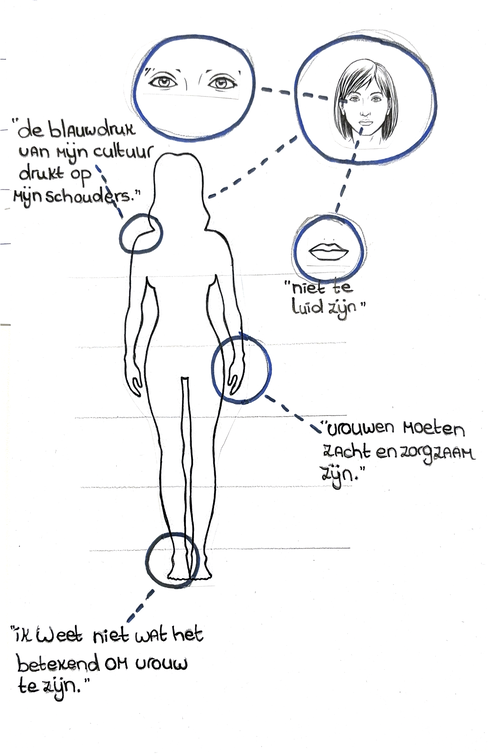 "de blauwdruk
van mijn cultuur
drukt op
mijn schouders."
"niet te
luid zijn"
"vrouwen moeten
zacht en zorgzaam
zijn."
"ik weet niet wat het
betekend om vrouw
te zijn."